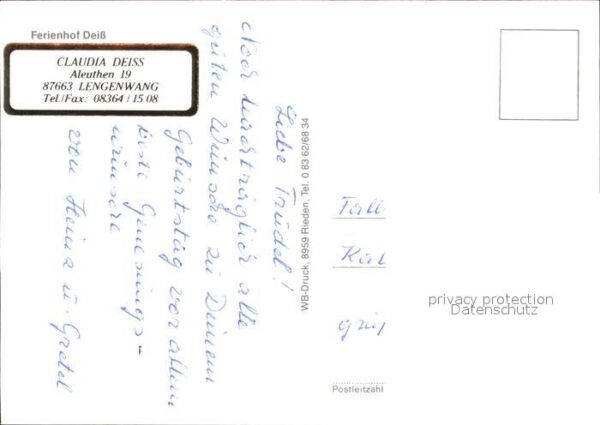 Ferienhof Deiß
CLAUDIA DEISS
Aleuthen 19
87663 LENGENWANG
Tel./Fax: 08364 / 15 08
Liebe Trudel!
Noch nachträglich alle
guten Wünsche zu Deinem
Geburtstag vor allem
beste Genesungs-
wünsche
von Heinz u. Gretel
WB-Druck, 8959 Rieden, Tel. 0 83 62/68 34
Postleitzahl
privacy protection
Datenschutz